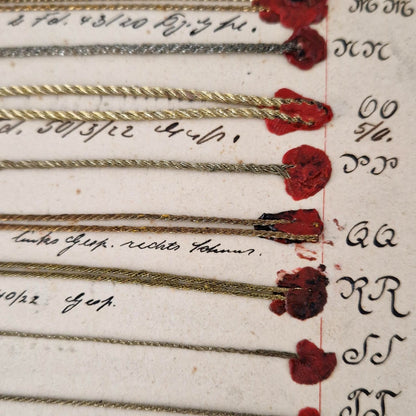 MM
Fd. 43/20
NN
OO
5/0.
d. 50/3/22 Gesp.
PP
QQ
links Gesp. rechts Schuss.
RR
40/22 Gesp.
SS
TT